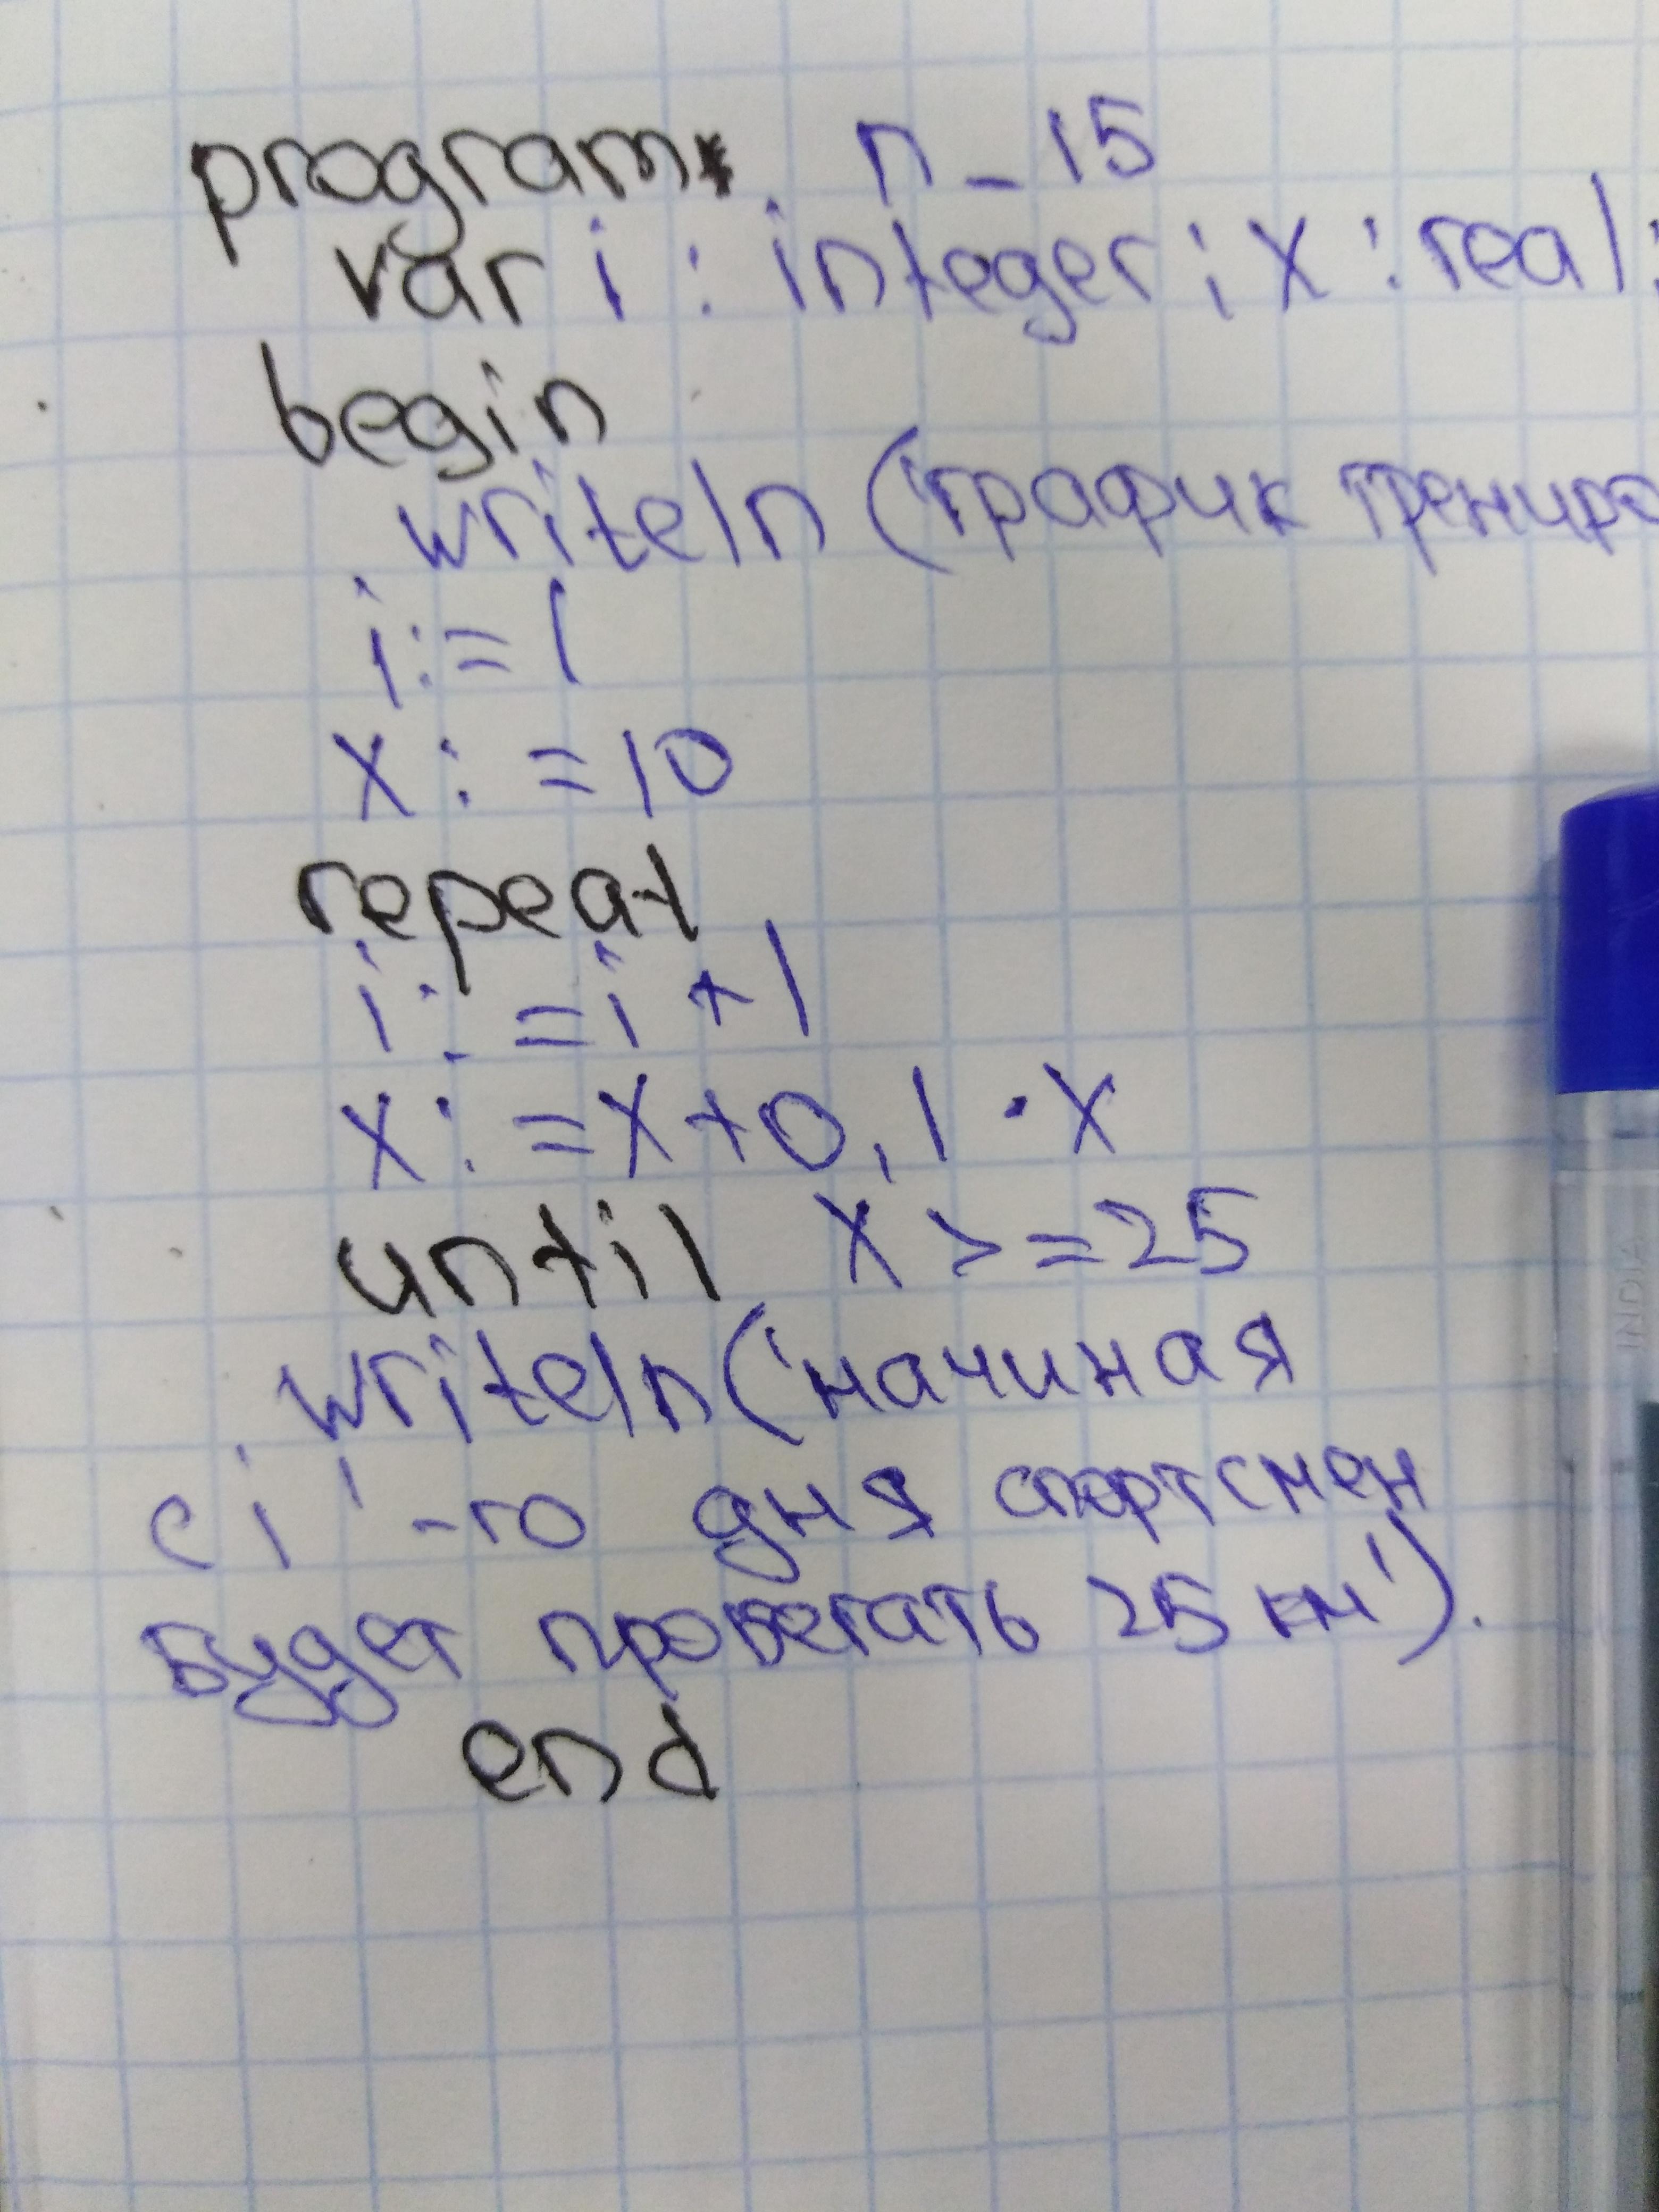 program n_15
var i : integer ; x : real ;
begin
writeln ('график трениро
i := 1
x := 10
repeat
i := i + 1
x := x + 0,1 · x
until x >= 25
writeln ('начиная
с i ' -го дня спортсмен
будет пробегать 25 км').
end
INDIA